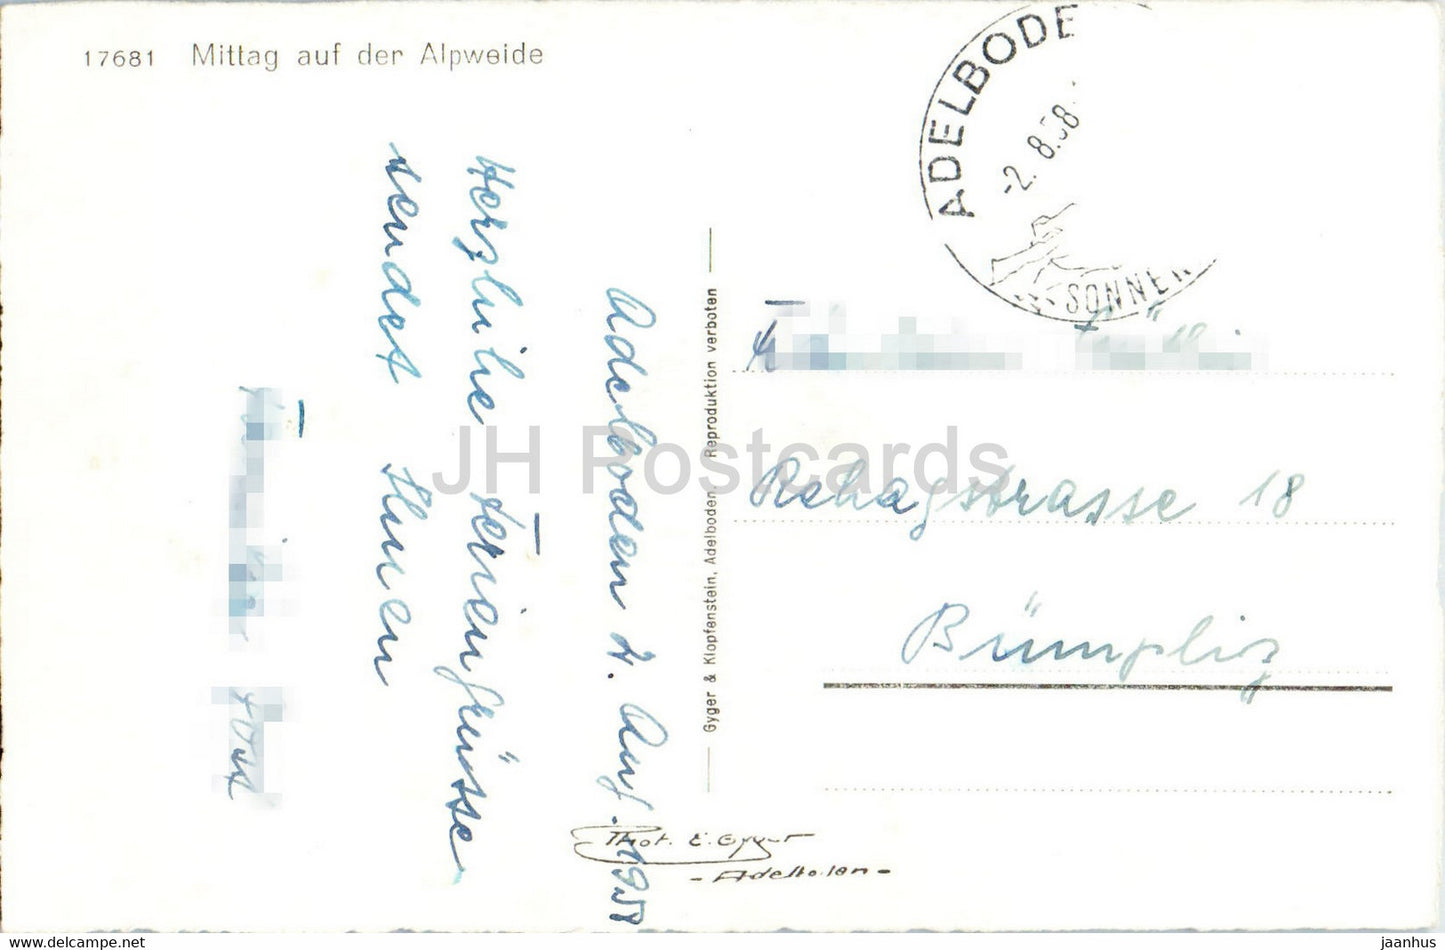 17681 Mittag auf der Alpweide
ADELBODE
-2. 8.58
SONNE
Adelboden 2. Aug. 1958
Herzliche Feriengrüsse
sendet Ihnen
Gyger & Klopfenstein, Adelboden. Reproduktion verboten
Rehagstrasse 18
Bümpliz
Phot. E. Gyger
- Adelboden -
JH Postcards
www.delcampe.net
jaanhus